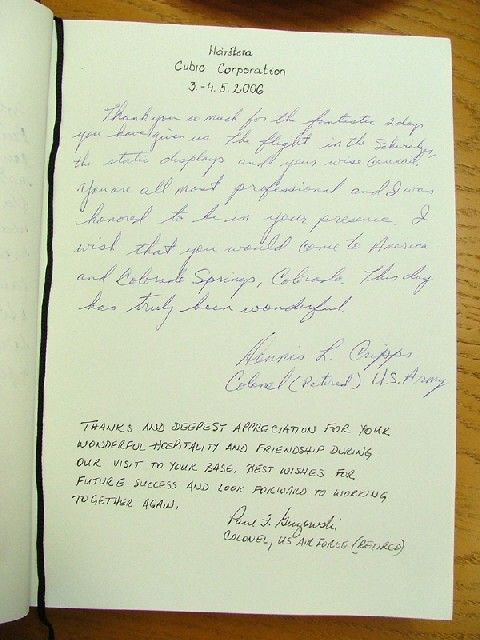 Cubic Corporation
3.-4.5.2006
Thank you so much for the fantastic 2 days
you have given us. The flight in the
the static displays and your wise counsel.
You are all most professional and I was
honored to be in your presence. I
wish that you would come to America
and Colorado Springs, Colorado. This day
has truly been wonderful.
Dennis L. Cripps
Colonel (Retired) U.S. Army
THANKS AND DEEPEST APPRECIATION FOR YOUR
WONDERFUL HOSPITALITY AND FRIENDSHIP DURING
OUR VISIT TO YOUR BASE. BEST WISHES FOR
FUTURE SUCCESS AND LOOK FORWARD TO WORKING
TOGETHER AGAIN.
COLONEL, US AIR FORCE (RETIRED)